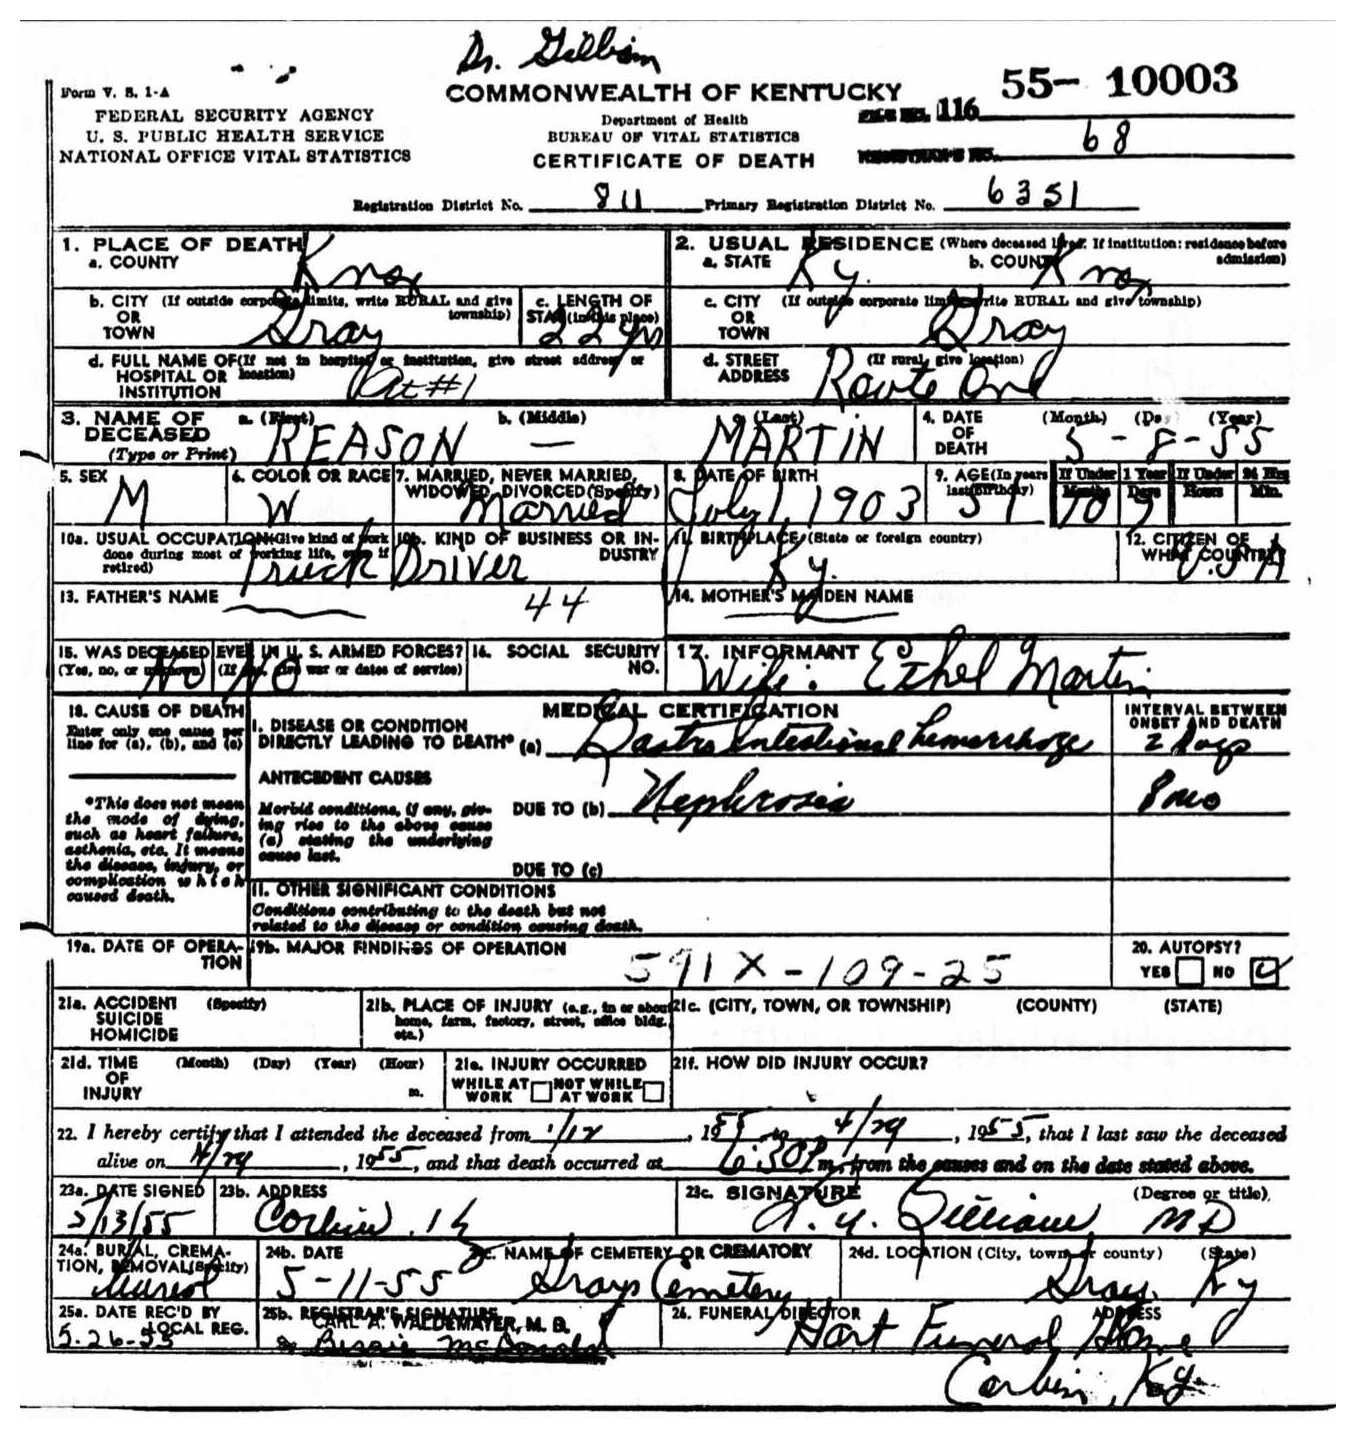 Dr. Gilliam
Form V. S. 1-A
FEDERAL SECURITY AGENCY
U. S. PUBLIC HEALTH SERVICE
NATIONAL OFFICE VITAL STATISTICS
COMMONWEALTH OF KENTUCKY
Department of Health
BUREAU OF VITAL STATISTICS
CERTIFICATE OF DEATH
55- 10003
FILE NO. 116
REGISTRAR'S NO. 68
Registration District No. 811 Primary Registration District No. 6351
1. PLACE OF DEATH
a. COUNTY Knox
2. USUAL RESIDENCE (Where deceased lived. If institution: residence before admission)
a. STATE Ky. b. COUNTY Knox
b. CITY (If outside corporate limits, write RURAL and give township)
OR
TOWN Gray
c. LENGTH OF
STAY (in this place) 22 yrs
c. CITY (If outside corporate limits, write RURAL and give township)
OR
TOWN Gray
d. FULL NAME OF (If not in hospital or institution, give street address or location)
HOSPITAL OR
INSTITUTION Rt #1
d. STREET (If rural, give location)
ADDRESS Route One
3. NAME OF DECEASED
(Type or Print)
a. (First) b. (Middle) (Last)
REASON — MARTIN
4. DATE OF DEATH (Month) (Day) (Year)
5-8-55
5. SEX
M
6. COLOR OR RACE
W
7. MARRIED, NEVER MARRIED,
WIDOWED, DIVORCED (Specify)
Married
8. DATE OF BIRTH
July 1, 1903
9. AGE (In years last birthday) 51
If Under 1 Year If Under 24 Hrs
Months Days Hours Min.
10
10a. USUAL OCCUPATION (Give kind of work done during most of working life, even if retired)
10b. KIND OF BUSINESS OR INDUSTRY
Truck Driver
11. BIRTHPLACE (State or foreign country)
Ky.
12. CITIZEN OF WHAT COUNTRY
U.S.A
13. FATHER'S NAME
44
14. MOTHER'S MAIDEN NAME
15. WAS DECEASED EVER IN U. S. ARMED FORCES?
(Yes, no, or unknown) (If yes, give war or dates of service)
No NO
16. SOCIAL SECURITY NO.
17. INFORMANT
Wife: Ethel Martin
18. CAUSE OF DEATH
Enter only one cause per line for (a), (b), and (c)
MEDICAL CERTIFICATION
INTERVAL BETWEEN ONSET AND DEATH
I. DISEASE OR CONDITION
DIRECTLY LEADING TO DEATH* (a) Gastro intestional hemorrhoge 2 days
*This does not mean the mode of dying, such as heart failure, asthenia, etc. It means the disease, injury, or complication which caused death.
ANTECEDENT CAUSES
Morbid conditions, if any, giving rise to the above cause (a) stating the underlying cause last.
DUE TO (b) Nephrosis 8 mo
DUE TO (c)
II. OTHER SIGNIFICANT CONDITIONS
Conditions contributing to the death but not related to the disease or condition causing death.
19a. DATE OF OPERATION
19b. MAJOR FINDINGS OF OPERATION
591X-109-25
20. AUTOPSY?
YES NO
21a. ACCIDENT (Specify)
SUICIDE
HOMICIDE
21b. PLACE OF INJURY (e.g., in or about home, farm, factory, street, office bldg., etc.)
21c. (CITY, TOWN, OR TOWNSHIP) (COUNTY) (STATE)
21d. TIME (Month) (Day) (Year) (Hour)
OF
INJURY m.
21e. INJURY OCCURRED
WHILE AT WORK NOT WHILE AT WORK
21f. HOW DID INJURY OCCUR?
22. I hereby certify that I attended the deceased from 1/12, 1955 to 4/29, 1955, that I last saw the deceased
alive on 4/29, 1955, and that death occurred at 6:30 P m, from the causes and on the date stated above.
23a. DATE SIGNED
5/13/55
23b. ADDRESS
Corbin, Ky
23c. SIGNATURE (Degree or title)
Gilliam MD
24a. BURIAL, CREMATION, REMOVAL (Specify)
24b. DATE
5-11-55
24c. NAME OF CEMETERY OR CREMATORY
Grays Cemetery
24d. LOCATION (City, town, or county) (State)
Gray Ky
25a. DATE REC'D BY LOCAL REG.
5-26-55
25b. REGISTRAR'S SIGNATURE
CARL A. WALDEMAYER, M. D.
Bessie McDonald
26. FUNERAL DIRECTOR ADDRESS
Hart Funeral Home
Corbin, Ky.